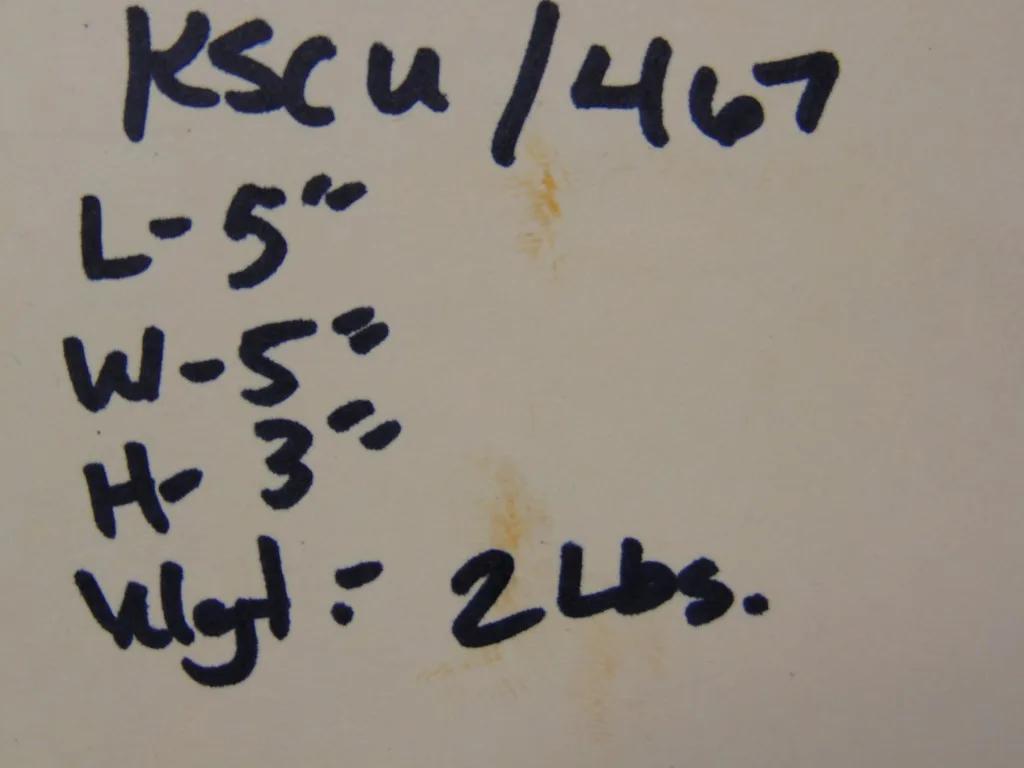 KSCU/467
L- 5"
W- 5"
H- 3"
Wgt: 2 Lbs.